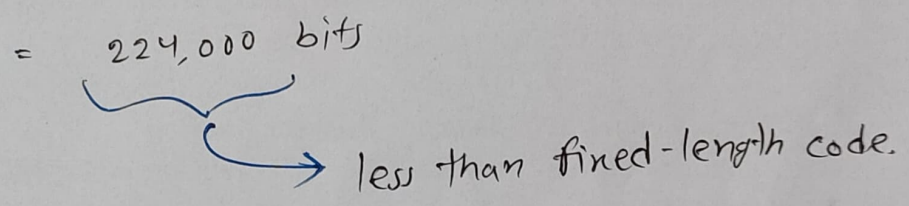 = 224,000 bits
less than fixed-length code.